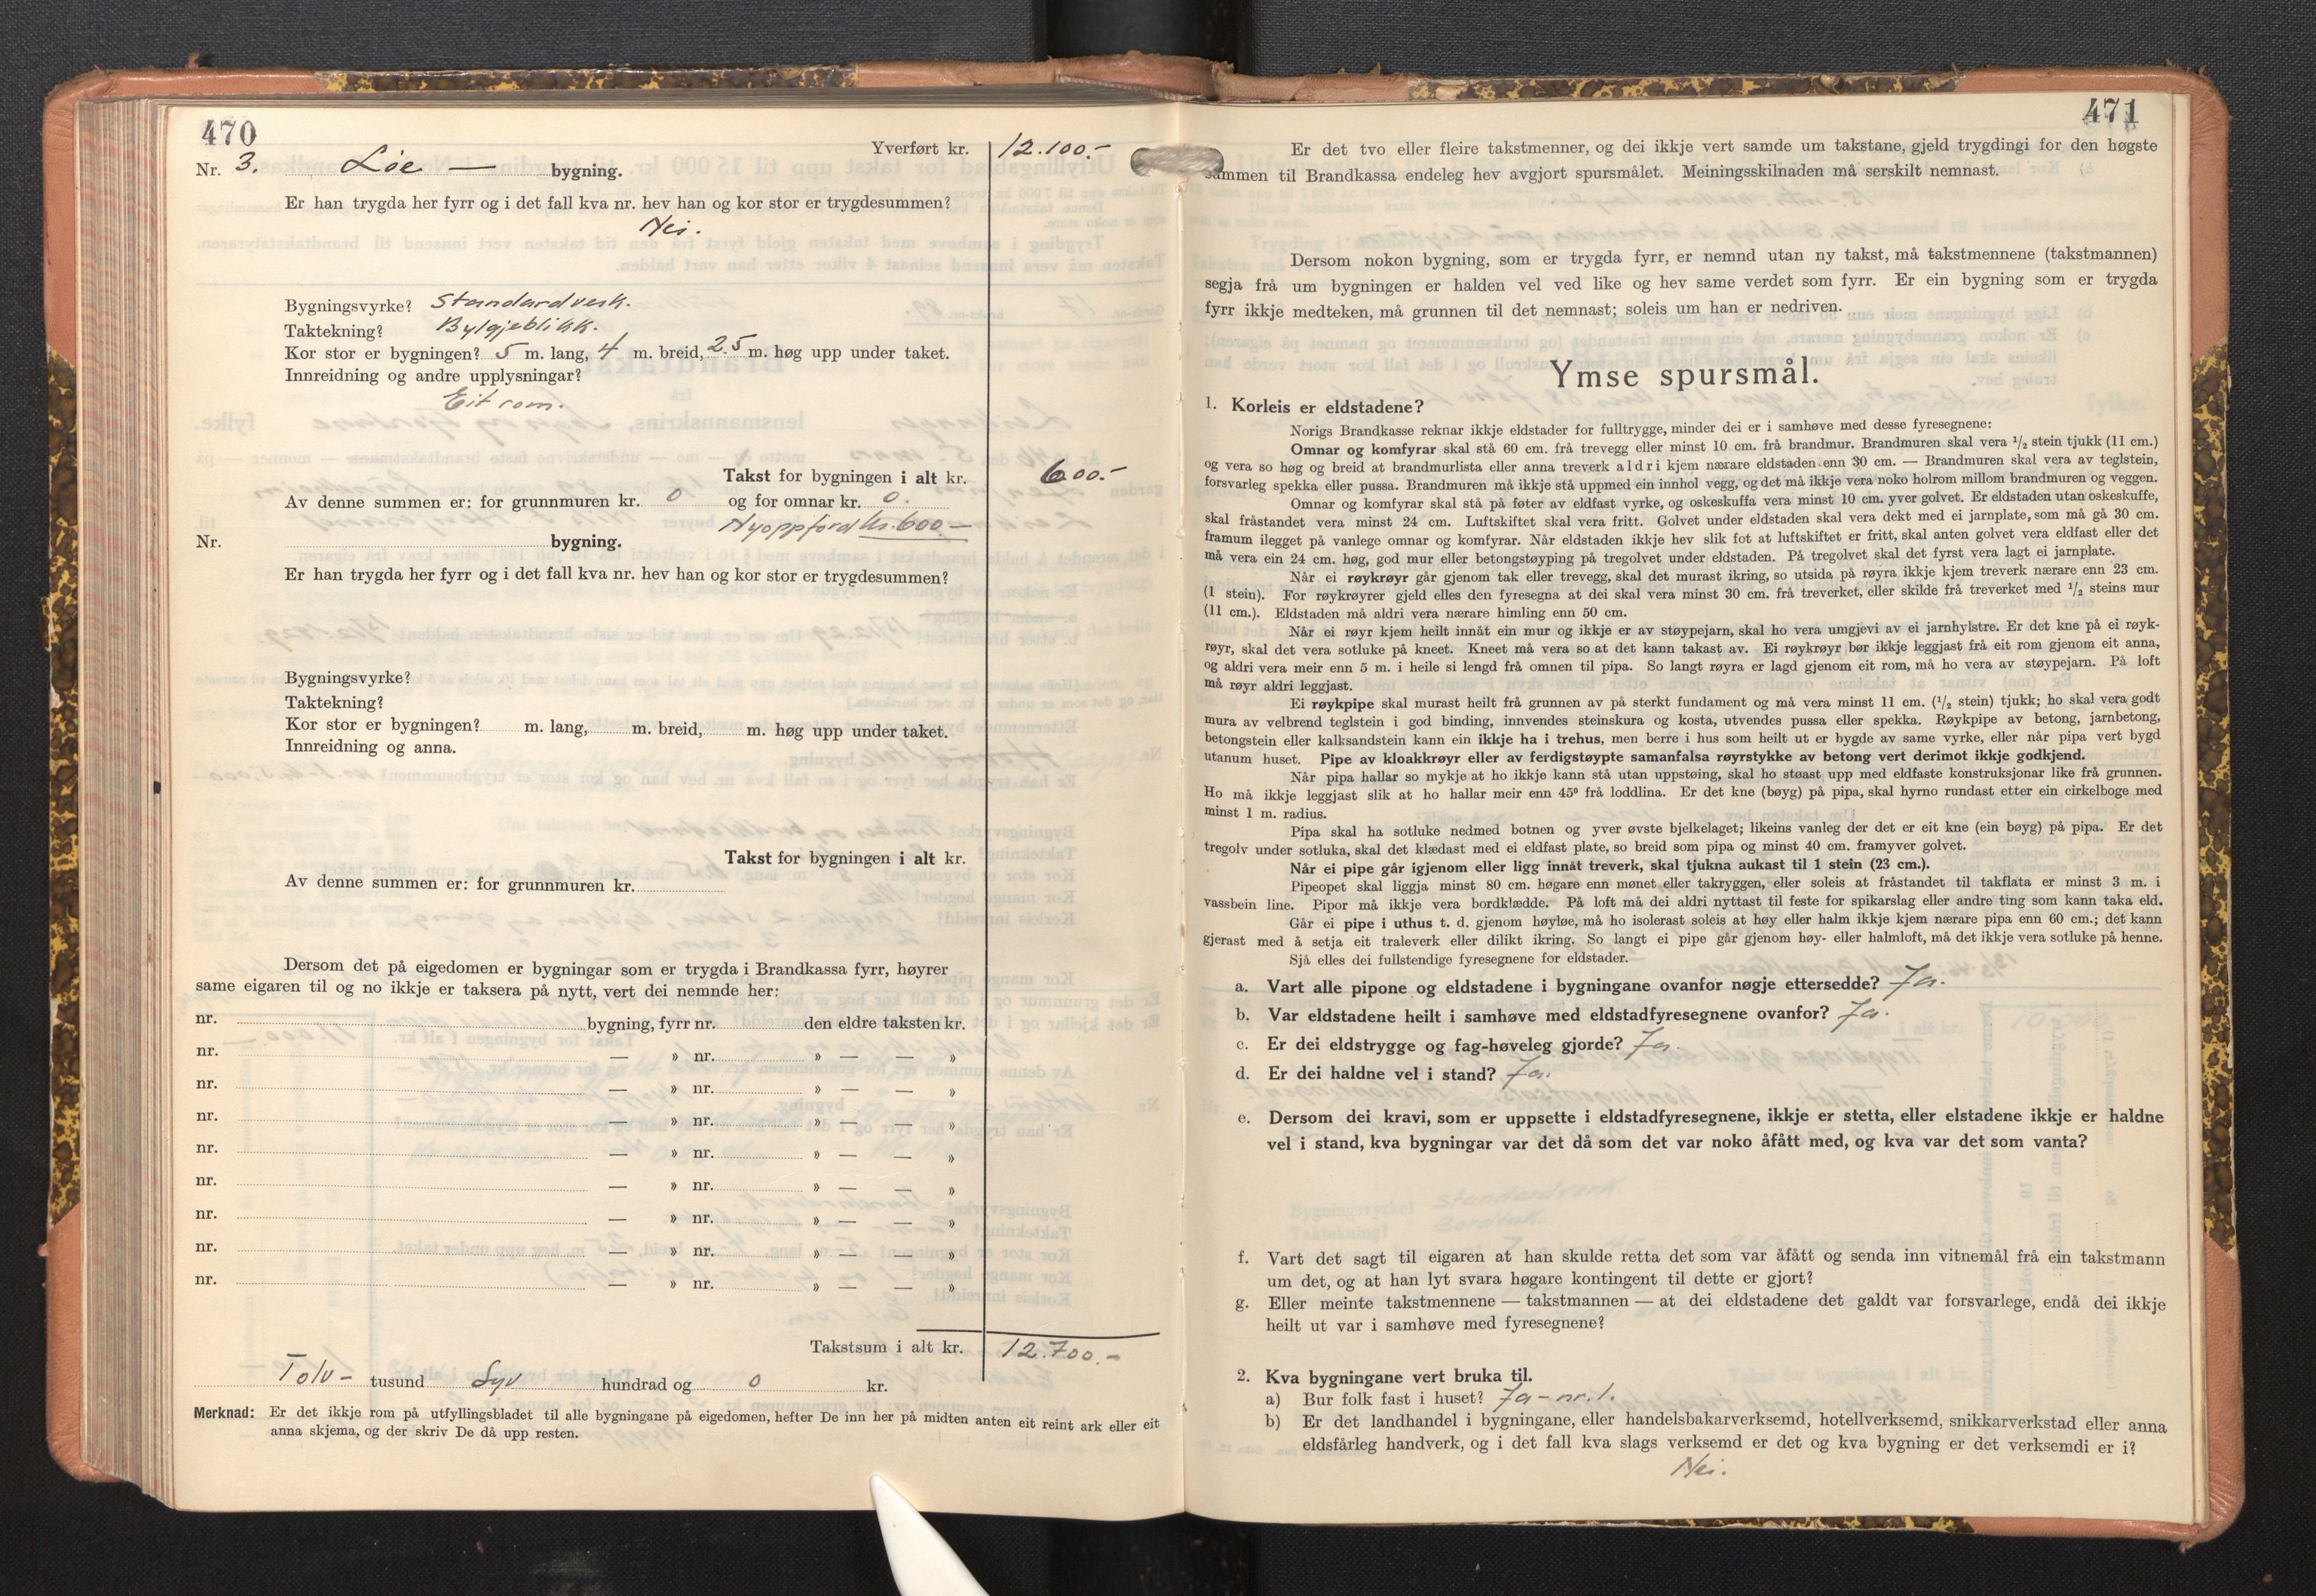 470
Yverført kr. 12.100.-
Nr. 3. Löe — bygning.
Er han trygda her fyrr og i det fall kva nr. hev han og kor stor er trygdesummen?
Nei.
Bygningsvyrke? Standardverk.
Taktekning? Bylgjeblikk.
Kor stor er bygningen? 5 m. lang, 4 m. breid, 2.5 m. høg upp under taket.
Innreidning og andre upplysningar?
Eit rom.
Takst for bygningen i alt kr. 600.-
Av denne summen er: for grunnmuren kr. 0 og for omnar kr. 0.
Nyoppförd kr. 600.—
Nr. bygning.
Er han trygda her fyrr og i det fall kva nr. hev han og kor stor er trygdesummen?
Bygningsvyrke?
Taktekning?
Kor stor er bygningen? m. lang, m. breid, m. høg upp under taket.
Innreidning og anna.
Takst for bygningen i alt kr.
Av denne summen er: for grunnmuren kr.
Dersom det på eigedomen er bygningar som er trygda i Brandkassa fyrr, høyrer
same eigaren til og no ikkje er taksera på nytt, vert dei nemnde her:
nr. bygning, fyrr nr. den eldre taksten kr.
nr. — » nr. » — — »
nr. — » nr. » — — »
nr. — » nr. » — — »
nr. — » nr. » — — »
nr. — » nr. » — — »
nr. — » nr. » — — »
nr. — » nr. » — — »
nr. — » nr. » — — »
Takstsum i alt kr. 12.700.-
Tolv - tusund Syv hundrad og 0 kr.
Merknad: Er det ikkje rom på utfyllingsbladet til alle bygningane på eigedomen, hefter De inn her på midten anten eit reint ark eller eit
anna skjema, og der skriv De då upp resten.
471
Er det tvo eller fleire takstmenner, og dei ikkje vert samde um takstane, gjeld trygdingi for den høgste
summen til Brandkassa endeleg hev avgjort spursmålet. Meiningsskilnaden må serskilt nemnast.
Dersom nokon bygning, som er trygda fyrr, er nemnd utan ny takst, må takstmennene (takstmannen)
segja frå um bygningen er halden vel ved like og hev same verdet som fyrr. Er ein bygning som er trygda
fyrr ikkje medteken, må grunnen til det nemnast; soleis um han er nedriven.
Ymse spursmål.
1. Korleis er eldstadene?
Norigs Brandkasse reknar ikkje eldstader for fulltrygge, minder dei er i samhøve med desse fyresegnene:
Omnar og komfyrar skal stå 60 cm. frå trevegg eller minst 10 cm. frå brandmur. Brandmuren skal vera 1/2 stein tjukk (11 cm.)
og vera so høg og breid at brandmurlista eller anna treverk aldri kjem nærare eldstaden enn 30 cm. — Brandmuren skal vera av teglstein,
forsvarleg spekka eller pussa. Brandmuren må ikkje stå uppmed ein innhol vegg, og det må ikkje vera noko holrom millom brandmuren og veggen.
Omnar og komfyrar skal stå på føter av eldfast vyrke, og oskeskuffa vera minst 10 cm. yver golvet. Er eldstaden utan oskeskuffe,
skal fråstandet vera minst 24 cm. Luftskiftet skal vera fritt. Golvet under eldstaden skal vera dekt med ei jarnplate, som må gå 30 cm.
framum ilegget på vanlege omnar og komfyrar. Når eldstaden ikkje hev slik fot at luftskiftet er fritt, skal anten golvet vera eldfast eller det
må vera ein 24 cm. høg, god mur eller betongstøyping på tregolvet under eldstaden. På tregolvet skal det fyrst vera lagt ei jarnplate.
Når ei røykrøyr går gjenom tak eller trevegg, skal det murast ikring, so utsida på røyra ikkje kjem treverk nærare enn 23 cm.
(1 stein). For røykrøyrer gjeld elles den fyresegna at dei skal vera minst 30 cm. frå treverket, eller skilde frå treverket med 1/2 steins mur
(11 cm.). Eldstaden må aldri vera nærare himling enn 50 cm.
Når ei røyr kjem heilt innåt ein mur og ikkje er av støypejarn, skal ho vera umgjevi av ei jarnhylstre. Er det kne på ei røyk-
røyr, skal det vera sotluke på kneet. Kneet må vera so at det kann takast av. Ei røykrøyr bør ikkje leggjast frå eit rom gjenom eit anna,
og aldri vera meir enn 5 m. i heile si lengd frå omnen til pipa. So langt røyra er lagd gjenom eit rom, må ho vera av støypejarn. På loft
må røyr aldri leggjast.
Ei røykpipe skal murast heilt frå grunnen av på sterkt fundament og må vera minst 11 cm. (1/2 stein) tjukk; ho skal vera godt
mura av velbrend teglstein i god binding, innvendes steinskura og kosta, utvendes pussa eller spekka. Røykpipe av betong, jarnbetong,
betongstein eller kalksandstein kann ein ikkje ha i trehus, men berre i hus som heilt ut er bygde av same vyrke, eller når pipa vert bygd
utanum huset. Pipe av kloakkrøyr eller av ferdigstøypte samanfalsa røyrstykke av betong vert derimot ikkje godkjend.
Når pipa hallar so mykje at ho ikkje kann stå utan uppstøing, skal ho støast upp med eldfaste konstruksjonar like frå grunnen.
Ho må ikkje leggjast slik at ho hallar meir enn 45° frå loddlina. Er det kne (bøyg) på pipa, skal hyrno rundast etter ein cirkelboge med
minst 1 m. radius.
Pipa skal ha sotluke nedmed botnen og yver øvste bjelkelaget; likeins vanleg der det er eit kne (ein bøyg) på pipa. Er det
tregolv under sotluka, skal det klædast med ei eldfast plate, so breid som pipa og minst 40 cm. framyver golvet.
Når ei pipe går igjenom eller ligg innåt treverk, skal tjukna aukast til 1 stein (23 cm.).
Pipeopet skal liggja minst 80 cm. høgare enn mønet eller takryggen, eller soleis at fråstandet til takflata er minst 3 m. i
vassbein line. Pipor må ikkje vera bordklædde. På loft må dei aldri nyttast til feste for spikarslag eller andre ting som kann taka eld.
Går ei pipe i uthus t. d. gjenom høyløe, må ho isolerast soleis at høy eller halm ikkje kjem nærare pipa enn 60 cm.; det kann
gjerast med å setja eit traleverk eller dilikt ikring. So langt ei pipe går gjenom høy- eller halmloft, må det ikkje vera sotluke på henne.
Sjå elles dei fullstendige fyresegnene for eldstader.
a. Vart alle pipone og eldstadene i bygningane ovanfor nøgje ettersedde? Ja.
b. Var eldstadene heilt i samhøve med eldstadfyresegnene ovanfor? Ja.
c. Er dei eldstrygge og fag-høveleg gjorde? Ja.
d. Er dei haldne vel i stand? Ja.
e. Dersom dei kravi, som er uppsette i eldstadfyresegnene, ikkje er stetta, eller elstadene ikkje er haldne
vel i stand, kva bygningar var det då som det var noko åfått med, og kva var det som vanta?
f. Vart det sagt til eigaren at han skulde retta det som var åfått og senda inn vitnemål frå ein takstmann
um det, og at han lyt svara høgare kontingent til dette er gjort?
g. Eller meinte takstmennene — takstmannen — at dei eldstadene det galdt var forsvarlege, endå dei ikkje
heilt ut var i samhøve med fyresegnene?
2. Kva bygningane vert bruka til.
a) Bur folk fast i huset? Ja - nr. 1.
b) Er det landhandel i bygningane, eller handelsbakarverksemd, hotellverksemd, snikkarverkstad eller anna
eldsfårleg handverk, og i det fall kva slags verksemd er det og kva bygning er det verksemdi er i?
Nei.